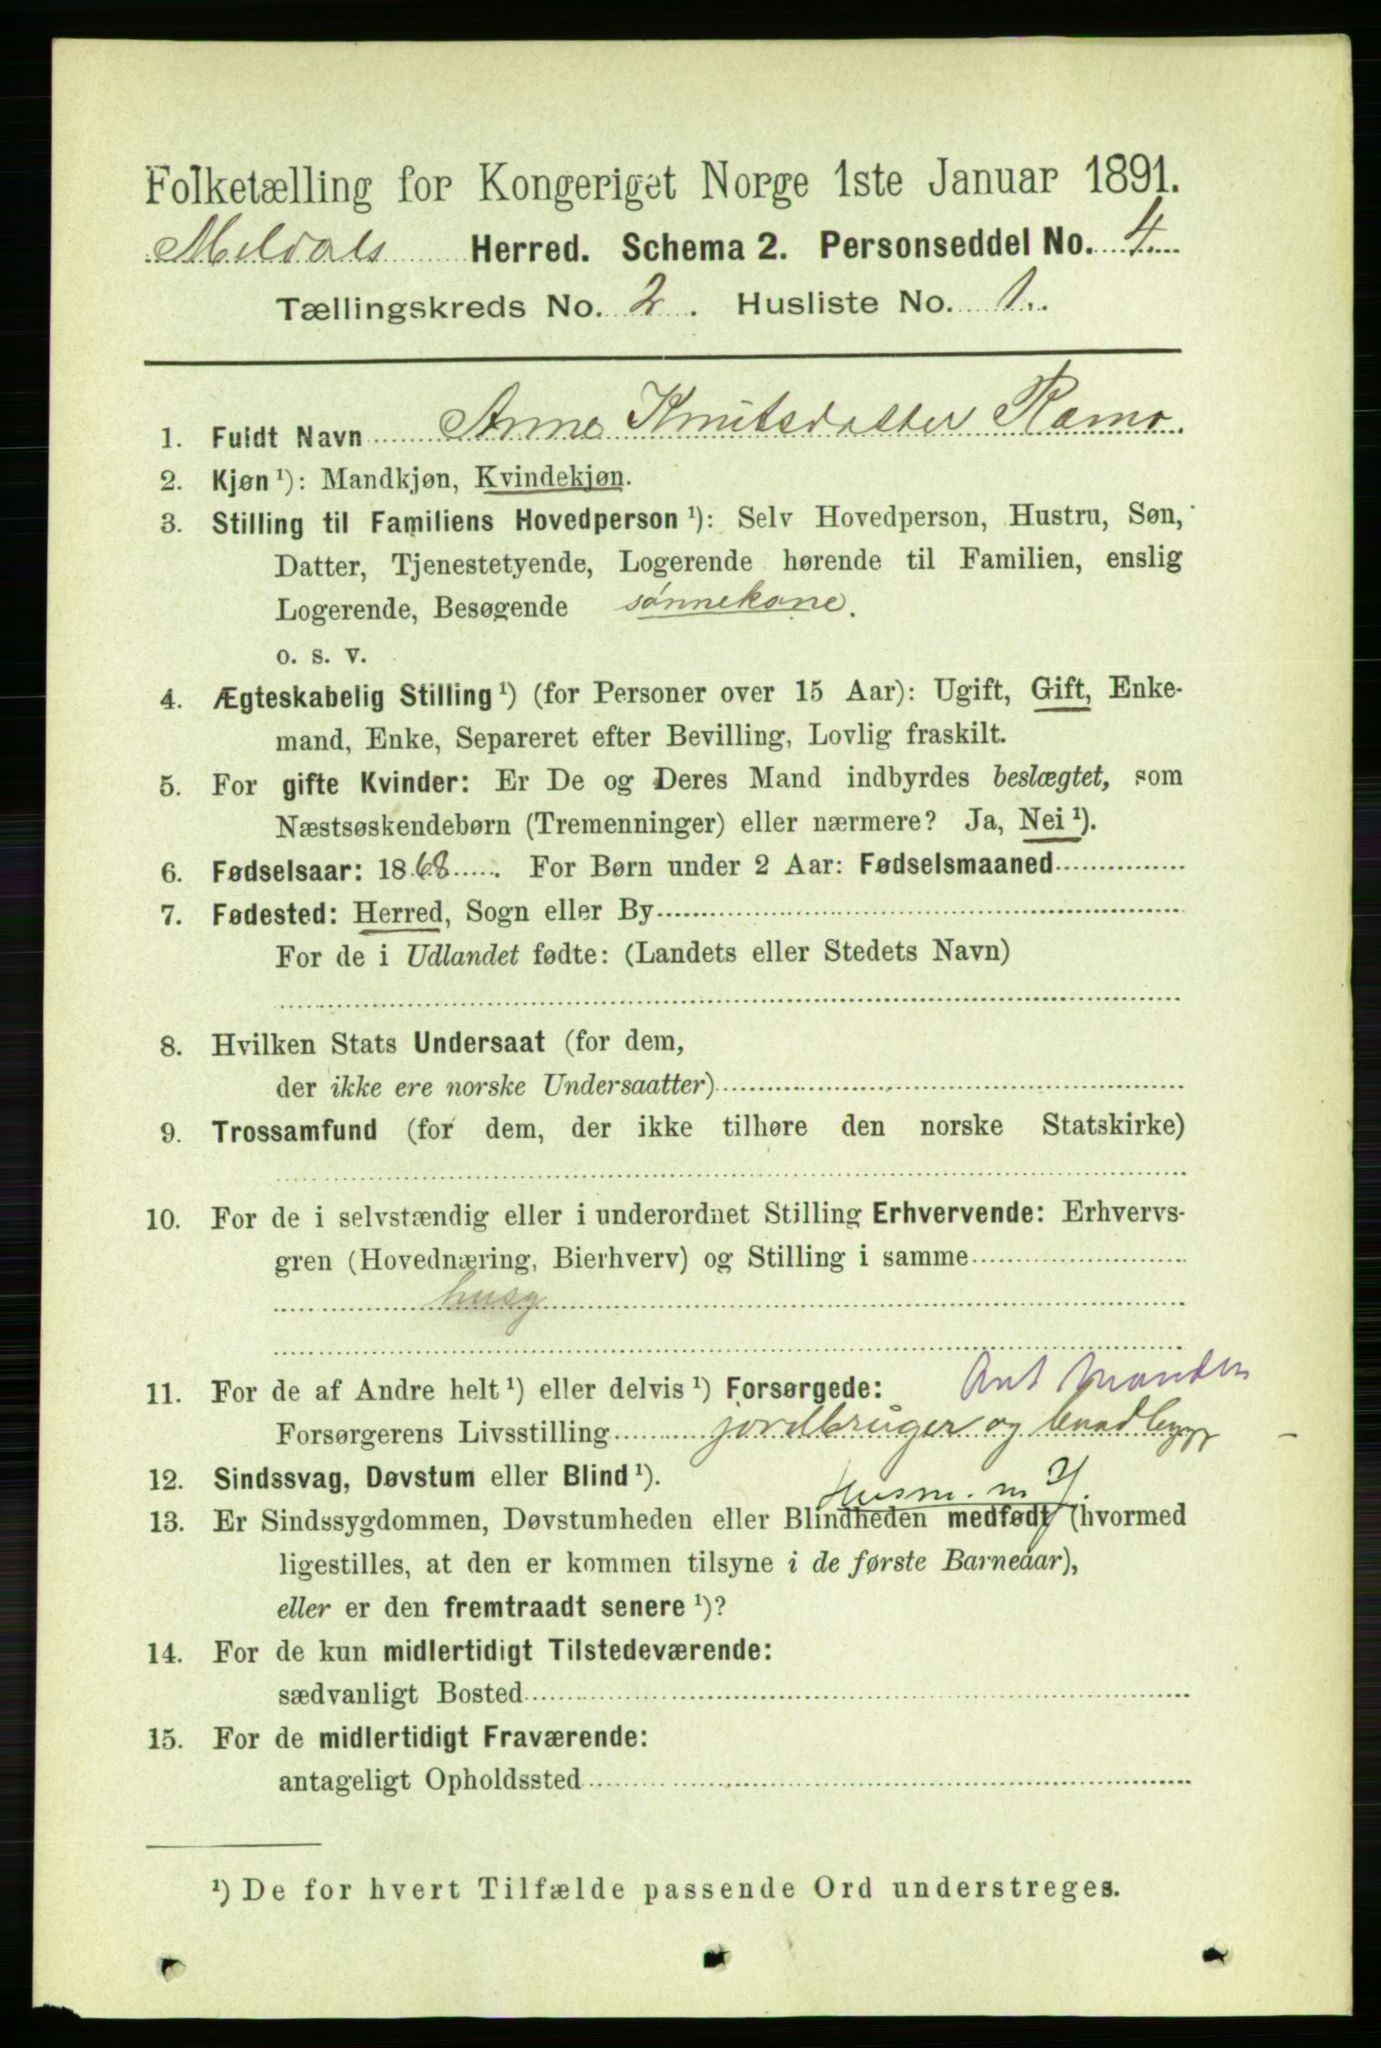 Folketælling for Kongeriget Norge 1ste Januar 1891.
Meldals Herred. Schema 2. Personseddel No. 4
Tællingskreds No. 2. Husliste No. 1.
1. Fuldt Navn Anne Knutsdatter Ramo
2. Kjøn ¹): Mandkjøn, Kvindekjøn.
3. Stilling til Familiens Hovedperson ¹): Selv Hovedperson, Hustru, Søn,
Datter, Tjenestetyende, Logerende hørende til Familien, enslig
Logerende, Besøgende sønnekone.
o. s. v.
4. Ægteskabelig Stilling ¹) (for Personer over 15 Aar): Ugift, Gift, Enke-
mand, Enke, Separeret efter Bevilling, Lovlig fraskilt.
5. For gifte Kvinder: Er De og Deres Mand indbyrdes beslægtet, som
Næstsøskendebørn (Tremenninger) eller nærmere? Ja, Nei ¹).
6. Fødselsaar: 1868 . For Børn under 2 Aar: Fødselsmaaned
7. Fødested: Herred, Sogn eller By
For de i Udlandet fødte: (Landets eller Stedets Navn)
8. Hvilken Stats Undersaat (for dem,
der ikke ere norske Undersaatter)
9. Trossamfund (for dem, der ikke tilhøre den norske Statskirke)
10. For de i selvstændig eller i underordnet Stilling Erhvervende: Erhvervs-
gren (Hovednæring, Bierhverv) og Stilling i samme
husg
11. For de af Andre helt ¹) eller delvis ¹) Forsørgede: Ant Manden
Forsørgerens Livsstilling jordbruger og
12. Sindssvag, Døvstum eller Blind ¹).
Husm. m J.
13. Er Sindssygdommen, Døvstumheden eller Blindheden medfødt (hvormed
ligestilles, at den er kommen tilsyne i de første Barneaar),
eller er den fremtraadt senere ¹)?
14. For de kun midlertidigt Tilstedeværende:
sædvanligt Bosted
15. For de midlertidigt Fraværende:
antageligt Opholdssted
¹) De for hvert Tilfælde passende Ord understreges.